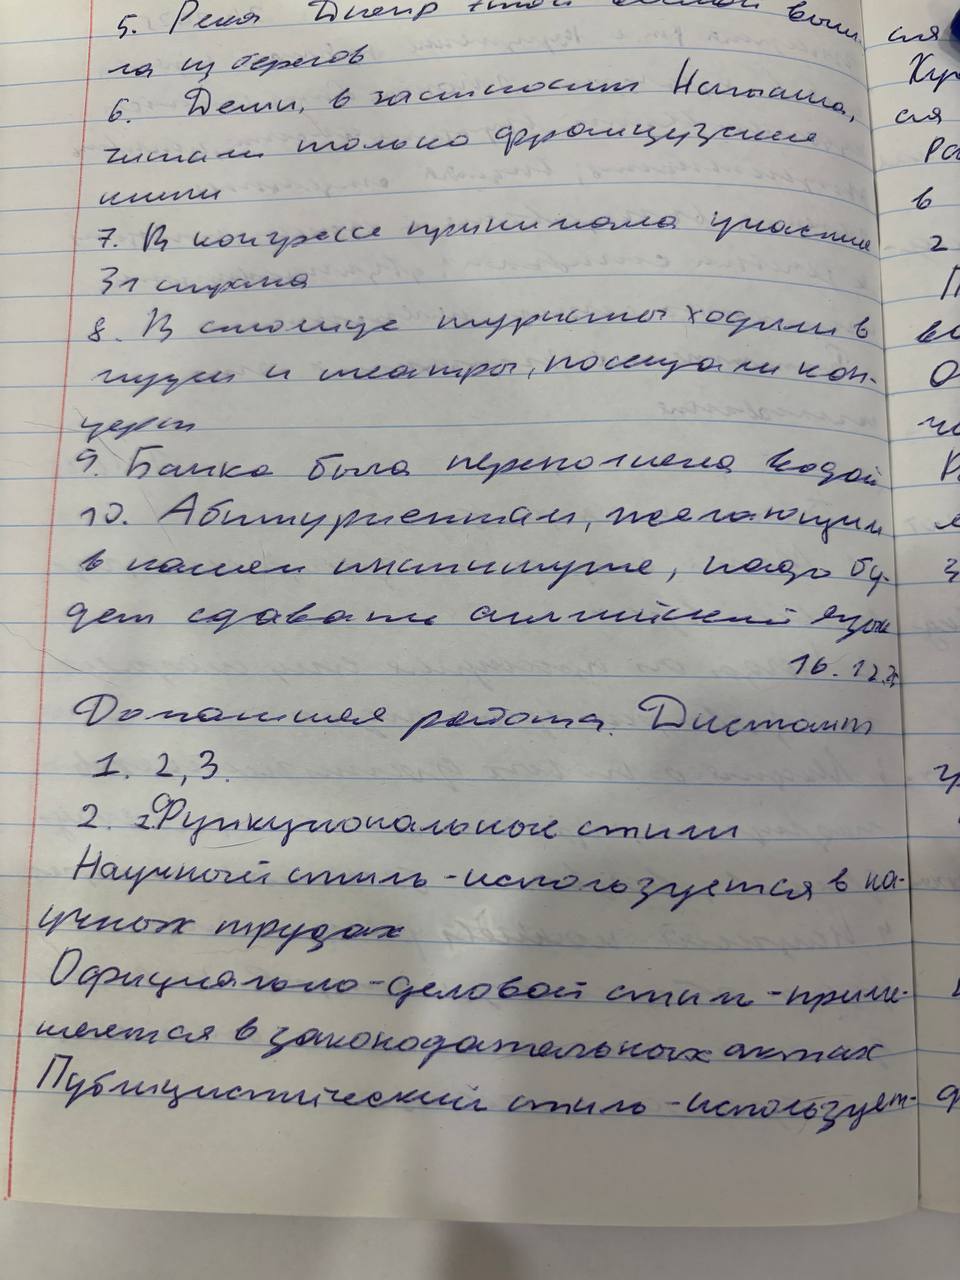 5. Река Днепр этой весной выш-
ла из берегов
6. Дети, в частности Наташа,
читали только французские
книги
7. В конгрессе принимала участие
31 страна
8. В столице туристы ходили в
музеи и театры, посещали кон-
церты
9. Банка была переполнена водой
10. Абитуриентам, желающим
в нашем институте, надо бу-
дет сдавать английский язык
16.12.
Домашняя работа. Дистант
1. 2, 3.
2. Функциональные стили
Научный стиль - используется в на-
учных трудах
Официально-деловой стиль - приме-
няется в законодательных актах
Публицистический стиль - использует-
ся
ся
в
2